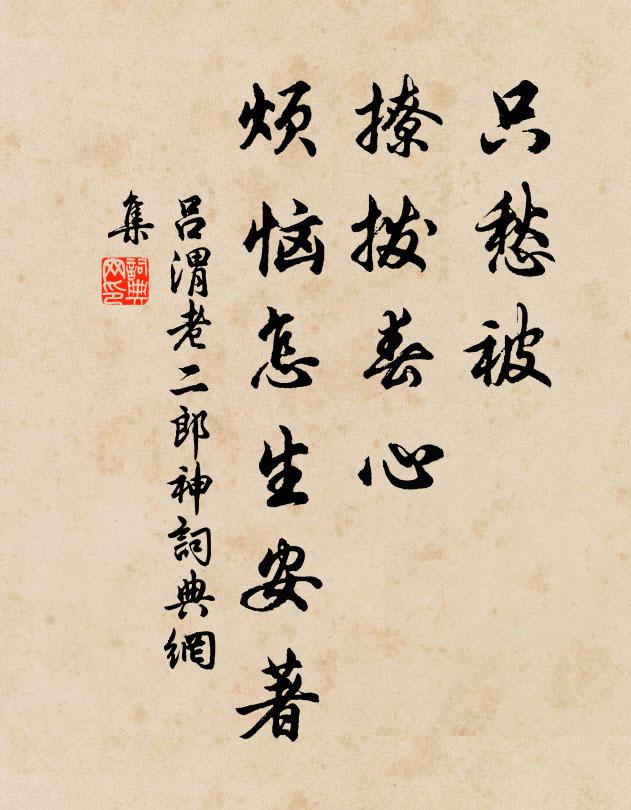 只愁被
撩拨春心
烦恼怎生安著
吕渭老二郎神詞典網
集
詞典
网印